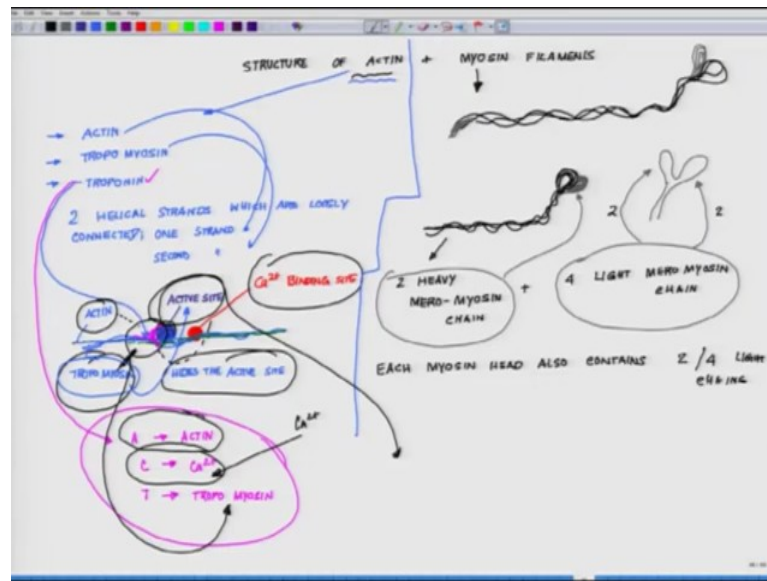 STRUCTURE OF ACTIN + MYOSIN FILAMENTS
→ ACTIN
→ TROPO MYOSIN
→ TROPONIN ✓
2 HELICAL STRANDS WHICH ARE LOOSLY
CONNECTED; ONE STRAND
SECOND "
Ca2+ BINDING SITE
ACTIVE SITE
ACTIN
TROPO MYOSIN
HIDES THE ACTIVE SITE
A → ACTIN
C → Ca2+
T → TROPO MYOSIN
Ca2+
2 HEAVY
MERO-MYOSIN
CHAIN
+
4 LIGHT MERO MYOSIN
CHAIN
2
2
EACH MYOSIN HEAD ALSO CONTAINS 2/4 LIGHT
CHAINS